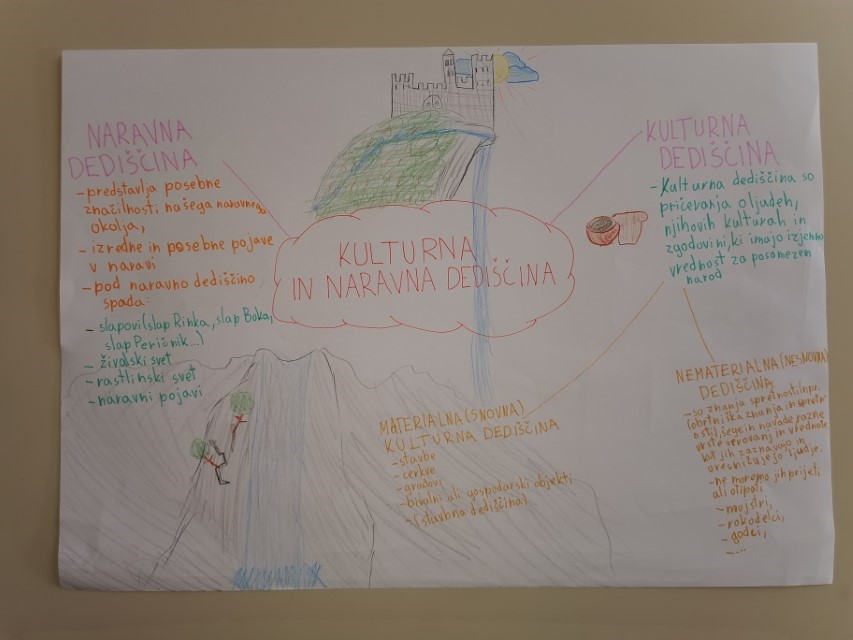 NARAVNA
DEDIŠČINA
-predstavlja posebne
značilnosti našega naravnega
okolja,
-izredne in posebne pojave
v naravi
-pod naravno dediščino
spada:
-slapovi(slap Rinka, slap Boka,
slap Peričnik...)
-živalski svet
-rastlinski svet
-naravni pojavi
KULTURNA
IN NARAVNA DEDIŠČINA
KULTURNA
DEDIŠČINA
-Kulturna dediščina so
pričevanja o ljudeh,
njihovih kulturah in
zgodovini, ki imajo izjemno
vrednost za posamezen
narod
MATERIALNA(SNOVNA)
KULTURNA DEDIŠČINA
-stavbe
-cerkve
-gradovi
-bivalni ali gospodarski objekti
-(stavbna dediščina)
NEMATERIALNA(NESNOVNA)
DEDIŠČINA
-so znanja spretnosti(npr.
(obrtniška znanja in spretn
osti), šege in navade, razne
vrste verovanj in vrednote
kot jih zaznavajo in
uresničujejo ljudje.
-ne moremo jih prijeti,
ali otipati
-mojstri,
-rokodelci,
-godci,
-...